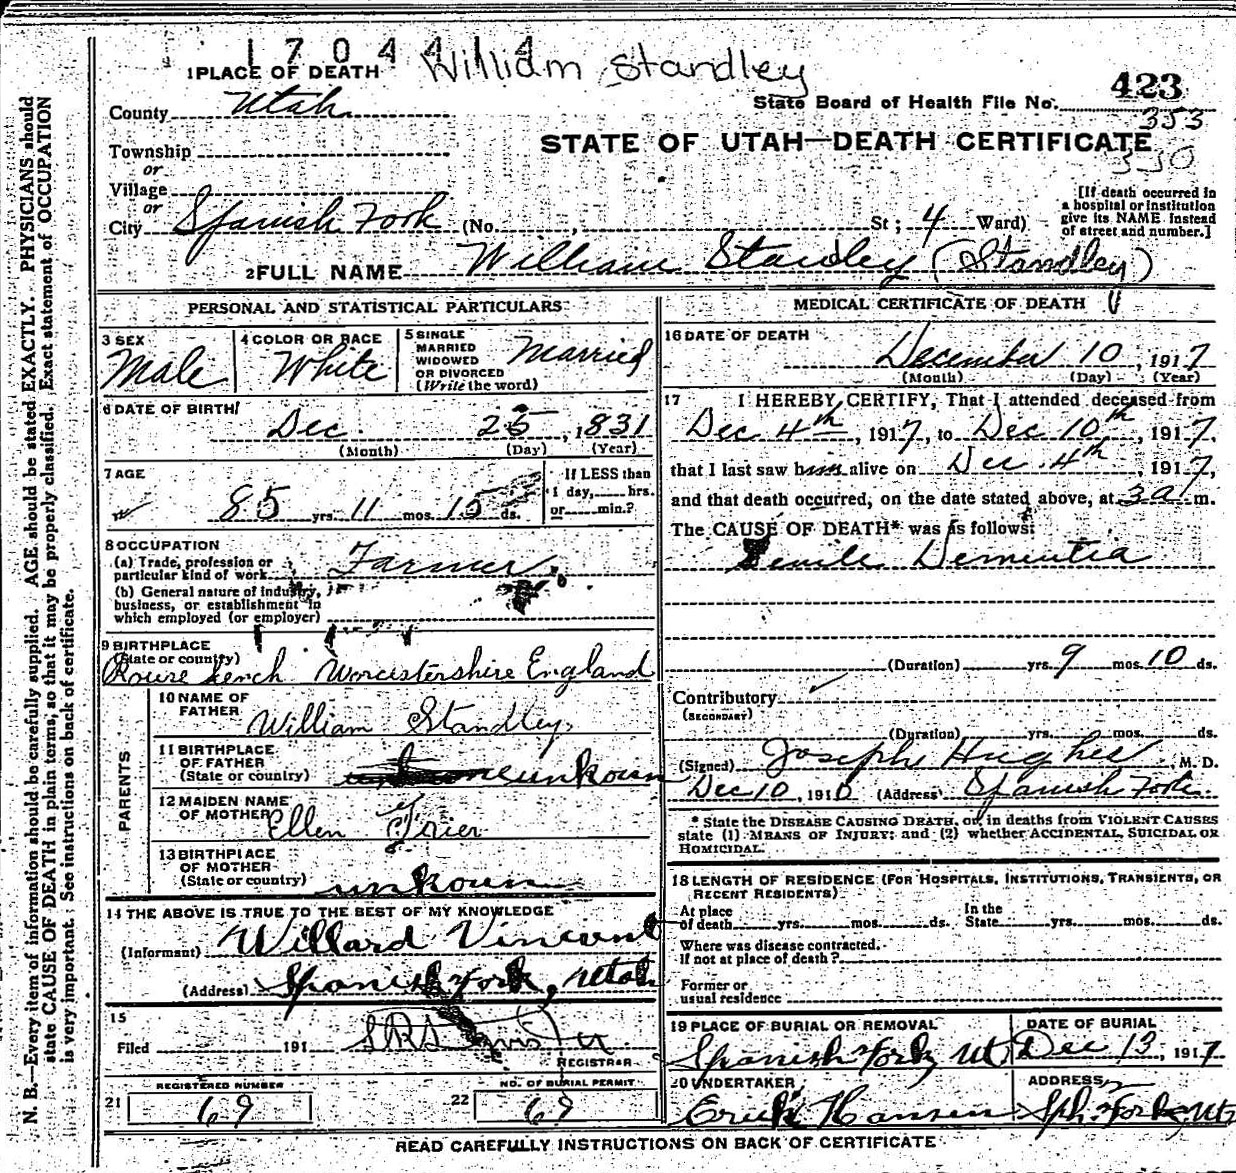 1704414 William Standley
1 PLACE OF DEATH
423
County Utah
State Board of Health File No.
353
STATE OF UTAH—DEATH CERTIFICATE
330
Township
or
Village
or
City Spanish Fork (No. , St; 4 Ward)
[If death occurred in
a hospital or institution
give its NAME instead
of street and number.]
2 FULL NAME William Standley (Standley)
PERSONAL AND STATISTICAL PARTICULARS
3 SEX
Male
4 COLOR OR RACE
White
5 SINGLE
MARRIED
WIDOWED
OR DIVORCED
(Write the word)
Married
6 DATE OF BIRTH
Dec. 25, 1831
(Month) (Day) (Year)
7 AGE
85 yrs. 11 mos. 15 ds.
If LESS than
1 day, hrs.
or min.?
8 OCCUPATION
(a) Trade, profession or
particular kind of work Farmer
(b) General nature of industry,
business, or establishment in
which employed (or employer)
9 BIRTHPLACE
(State or country)
Rouse Lench Worcestershire England
PARENTS
10 NAME OF
FATHER
William Standley
11 BIRTHPLACE
OF FATHER
(State or country) unkoun
12 MAIDEN NAME
OF MOTHER
Ellen Grier
13 BIRTHPLACE
OF MOTHER
(State or country) unkoun
14 THE ABOVE IS TRUE TO THE BEST OF MY KNOWLEDGE
(Informant) Willard Vincent
(Address) Spanish Fork, Utah
15
Filed 191
REGISTRAR
REGISTERED NUMBER
21 69
NO. OF BURIAL PERMIT
22 69
MEDICAL CERTIFICATE OF DEATH
16 DATE OF DEATH
December 10, 1917
(Month) (Day) (Year)
17 I HEREBY CERTIFY, That I attended deceased from
Dec 4th, 1917, to Dec 10th, 1917,
that I last saw him alive on Dec. 4th, 1917,
and that death occurred, on the date stated above, at 3 a m.
The CAUSE OF DEATH* was as follows:
Senile Dementia
(Duration) yrs. 9 mos. 10 ds.
Contributory
(SECONDARY)
(Duration) yrs. mos. ds.
(Signed) Joseph Hughes, M. D.
Dec 10, 1910 (Address) Spanish Fork
* State the DISEASE CAUSING DEATH, or, in deaths from VIOLENT CAUSES
state (1) MEANS OF INJURY; and (2) whether ACCIDENTAL, SUICIDAL OR
HOMICIDAL.
18 LENGTH OF RESIDENCE (FOR HOSPITALS, INSTITUTIONS, TRANSIENTS, OR
RECENT RESIDENTS)
At place
of death yrs. mos. ds.
In the
State yrs. mos. ds.
Where was disease contracted.
If not at place of death?
Former or
usual residence
19 PLACE OF BURIAL OR REMOVAL
Spanish Fork, Ut
DATE OF BURIAL
Dec 13, 1917
20 UNDERTAKER
Erick Hansen
ADDRESS
Sph. Fork, Ut
READ CAREFULLY INSTRUCTIONS ON BACK OF CERTIFICATE
N. B.—Every item of information should be carefully supplied. AGE should be stated EXACTLY. PHYSICIANS should
state CAUSE OF DEATH in plain terms, so that it may be properly classified. Exact statement of OCCUPATION
is very important. See instructions on back of certificate.